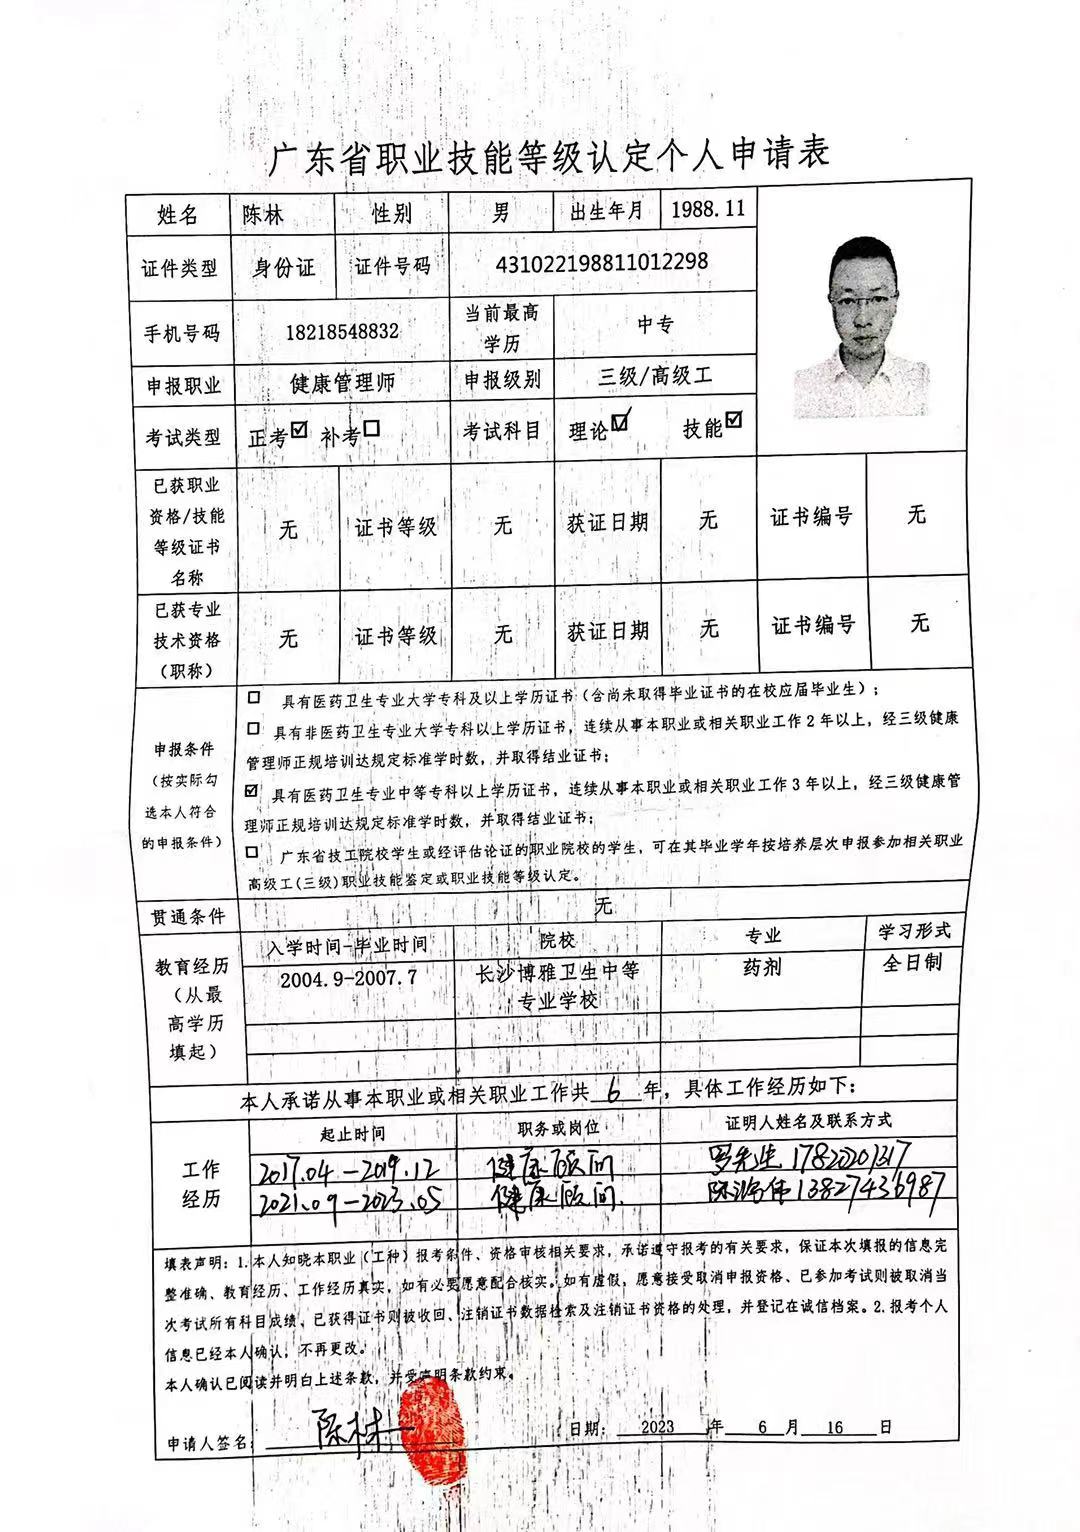 广东省职业技能等级认定个人申请表
姓名 陈林 性别 男 出生年月 1988.11
证件类型 身份证 证件号码 431022198811012298
手机号码 18218548832 当前最高学历 中专
申报职业 健康管理师 申报级别 三级/高级工
考试类型 正考☑ 补考☐ 考试科目 理论☑ 技能☑
已获职业资格/技能等级证书名称 无 证书等级 无 获证日期 无 证书编号 无
已获专业技术资格（职称） 无 证书等级 无 获证日期 无 证书编号 无
申报条件（按实际勾选本人符合的申报条件）
☐ 具有医药卫生专业大学专科及以上学历证书（含尚未取得毕业证书的在校应届毕业生）；
☐ 具有非医药卫生专业大学专科以上学历证书，连续从事本职业或相关职业工作2年以上，经三级健康
管理师正规培训达规定标准学时数，并取得结业证书；
☑ 具有医药卫生专业中等专科以上学历证书，连续从事本职业或相关职业工作3年以上，经三级健康管
理师正规培训达规定标准学时数，并取得结业证书；
☐ 广东省技工院校学生或经评估论证的职业院校的学生，可在其毕业学年按培养层次申报参加相关职业
高级工(三级)职业技能鉴定或职业技能等级认定。
贯通条件 无
教育经历（从最高学历填起）
入学时间-毕业时间 院校 专业 学习形式
2004.9-2007.7 长沙博雅卫生中等专业学校 药剂 全日制
本人承诺从事本职业或相关职业工作共 6 年，具体工作经历如下：
工作经历
起止时间 职务或岗位 证明人姓名及联系方式
2017.04-2019.12 健康顾问 罗先生 17820201317
2021.09-2023.05 健康顾问. 陈鸿伟 13827436987
填表声明：1.本人知晓本职业（工种）报考条件、资格审核相关要求，承诺遵守报考的有关要求，保证本次填报的信息完
整准确、教育经历、工作经历真实，如有必要愿意配合核实。如有虚假，愿意接受取消申报资格、已参加考试则被取消当
次考试所有科目成绩、已获得证书则被收回、注销证书数据检索及注销证书资格的处理，并登记在诚信档案。2.报考个人
信息已经本人确认，不再更改。
本人确认已阅读并明白上述条款，并受声明条款约束。
申请人签名： 陈林 日期： 2023 年 6 月 16 日